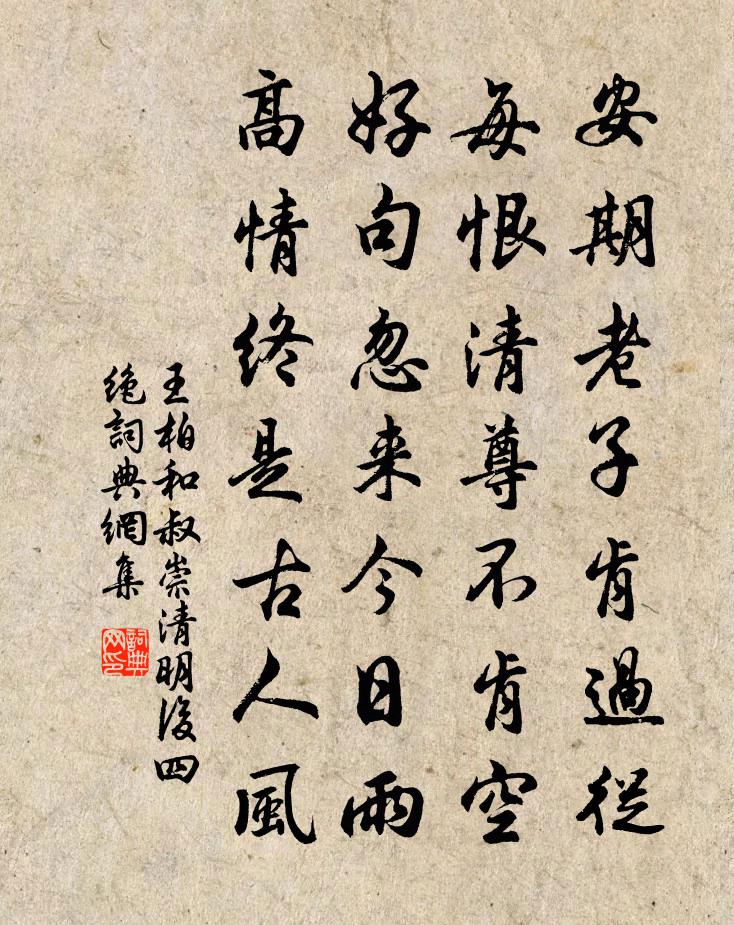 安期老子肯過從
每恨清尊不肯空
好句忽来今日雨
高情終是古人風
王柏和叔崇清明後四
絶詞典網集
詞典网印